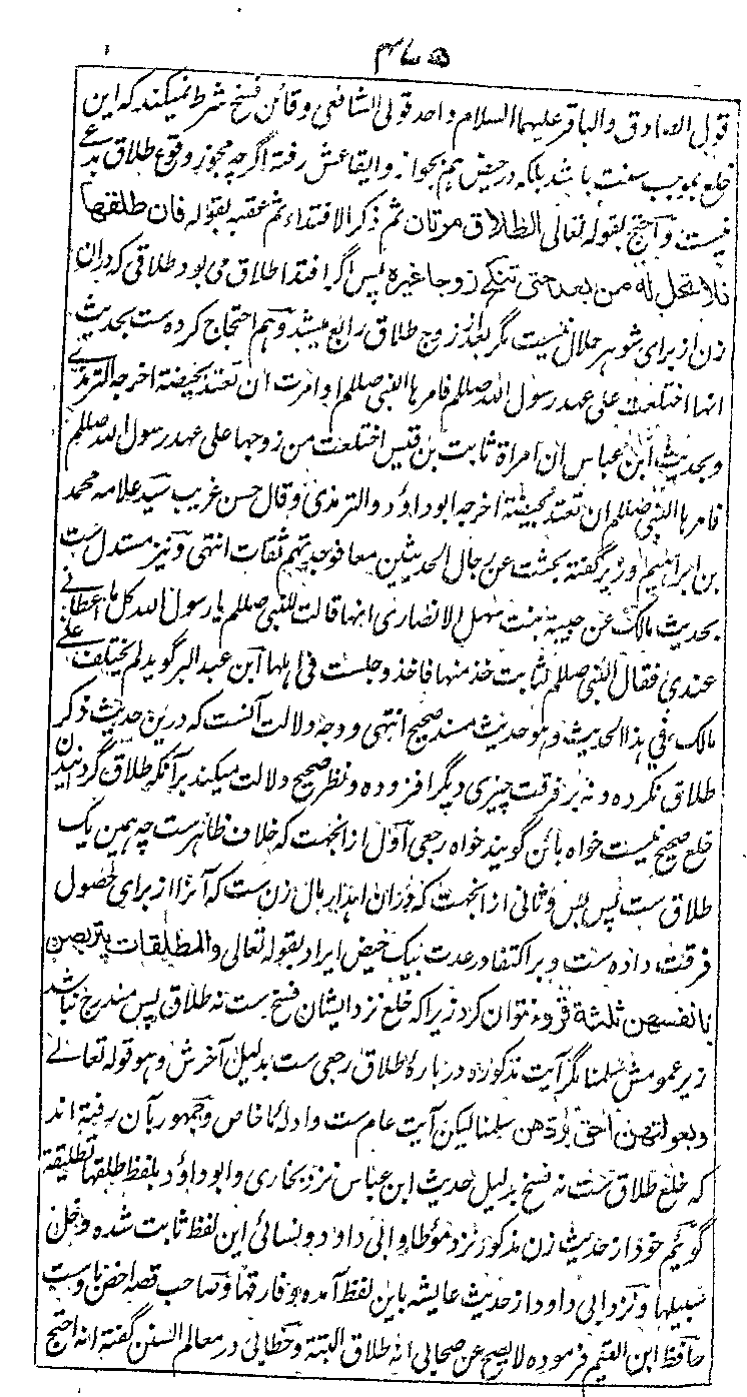 ۴۷۵
قول الصادق والباقر علیهما السلام واحد قولی الشافعی وقائل فسخ شرط نمیکند که این
خلع بموجب سنت باشد بلکه در حیض هم بجواز وایقاعش رفته اگرچه مجوز وقوع طلاق بدعی
نیست و احتج بقوله تعالی الطلاق مرتان ثم ذکر الافتداء ثم عقبه بقوله فان طلقها
فلا تحل له من بعد حتی تنکح زوجا غیره پس اگر افتدا طلاق می بود طلاقی که دران
زن از برای شوهر حلال نیست مگر بعد از زوج طلاق رابع میشد و هم احتجاج کرده ست بحدیث
انها اختلعت علی عهد رسول الله صللم فامرها النبی صللم او امرت ان تعتد بحیضة اخرجه الترمذی
و بحدیث ابن عباس ان امراة ثابت بن قیس اختلعت من زوجها علی عهد رسول الله صللم
فامرها النبی صللم ان تعتد بحیضة اخرجه ابو داؤد والترمذی وقال حسن غریب سید علامه محمد
بن ابراهیم وزیر گفته بحثت عن رجال الحدیثین معا فوجدتهم ثقات انتهی و نیز مستدل ست
بحدیث مالک عن حبیبة بنت سهل الانصاری انها قالت للنبی صللم یا رسول الله کل ما اعطانی
عندی فقال النبی صللم لثابت خذ منها فاخذ وجلست فی اهلها ابن عبد البر گوید لم یختلف علی
مالک فی هذا الحدیث وهو حدیث مسند صحیح انتهی و وجه دلالت آنست که درین حدیث ذکر
طلاق نکرده و نه بر فرقت چیزی دیگر افزوده و نظر صحیح دلالت میکند بر آنکه طلاق گردانیدن
خلع صحیح نیست خواه بائن گویند خواه رجعی اول از انجهت که خلاف ظاهرست چه همین یک
طلاق ست پس بس و ثانی از انجهت که دران اهدار مال زن ست که آنرا از برای حصول
فرقت داده ست و بر اکتفا در عدت بیک حیض ایراد بقوله تعالی والمطلقات یتربصن
بانفسهن ثلثة قروء نتوان کرد زیرا که خلع نزد ایشان فسخ ست نه طلاق پس مندرج نباشد
زیر عمومش سلمنا مگر آیت مذکوره درباره طلاق رجعی ست بدلیل آخرش وهو قوله تعالی
وبعولتهن احق بردهن سلمنا لیکن آیت عام ست و ادلۀ ما خاص و جمهور بآن رفته اند
که خلع طلاق ست نه فسخ بدلیل حدیث ابن عباس نزد بخاری و ابو داؤد بلفظ طلقها تطلیقة
گوئیم خود از حدیث زن مذکور نزد مؤطا و ابی داود و نسائی این لفظ ثابت شده وخل
سبیلها و نزد ابی داود از حدیث عایشه باین لفظ آمده وفارقها و صاحب قصه اخص باوست
حافظ ابن القیم فرموده لا یصح عن صحابی انه طلاق البتة و خطابی در معالم السنن گفته انه احتج